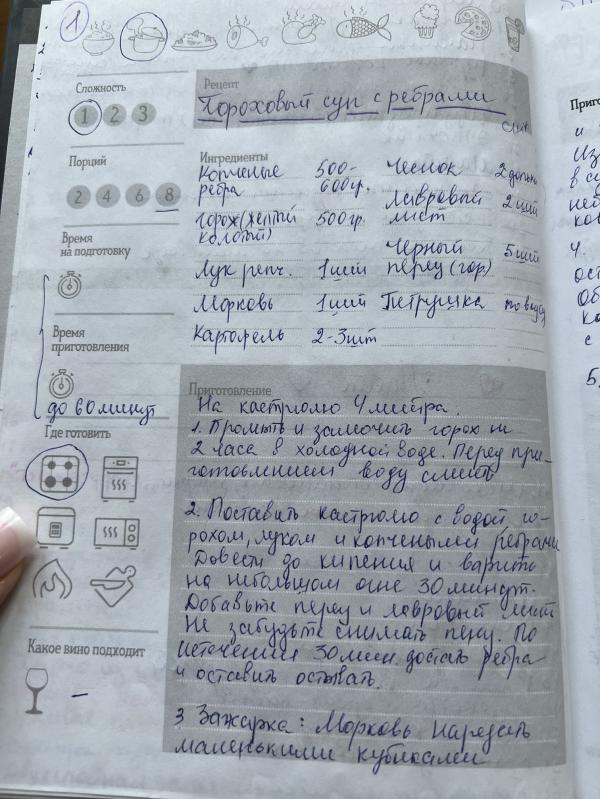 1
Сложность
1 2 3
Рецепт
Гороховый суп с ребрами
Порций
2 4 6 8
Время
на подготовку
Время
приготовления
до 60 минут
Где готовить
Какое вино подходит
–
Ингредиенты
Копченые ребра 500-600гр.
горох (желтый колотый) 500гр
Лук репч. 1шт
Морковь 1шт
Картофель 2-3шт
Чеснок 2 дольки
Лавровый лист 2шт
Черный перец (гор) 5шт
Петрушка по вкусу
Приготовление
На кастрюлю 4 литра.
1. Промыть и замочить горох на
2 часа в холодной воде. Перед при-
готовлением воду слить
2. Поставить кастрюлю с водой, го-
рохом, луком и копчеными ребрами
Довести до кипения и варить
на небольшом огне 30 минут.
Добавьте перец и лавровый лист
Не забудьте снимать пену. По
истечении 30 мин достать ребра
и оставить остывать.
3 Зажарка: Морковь нарезать
маленькими кубиками
Приго
и
Из
в су
не
ков
4.
ост
Об
ка
с
5.